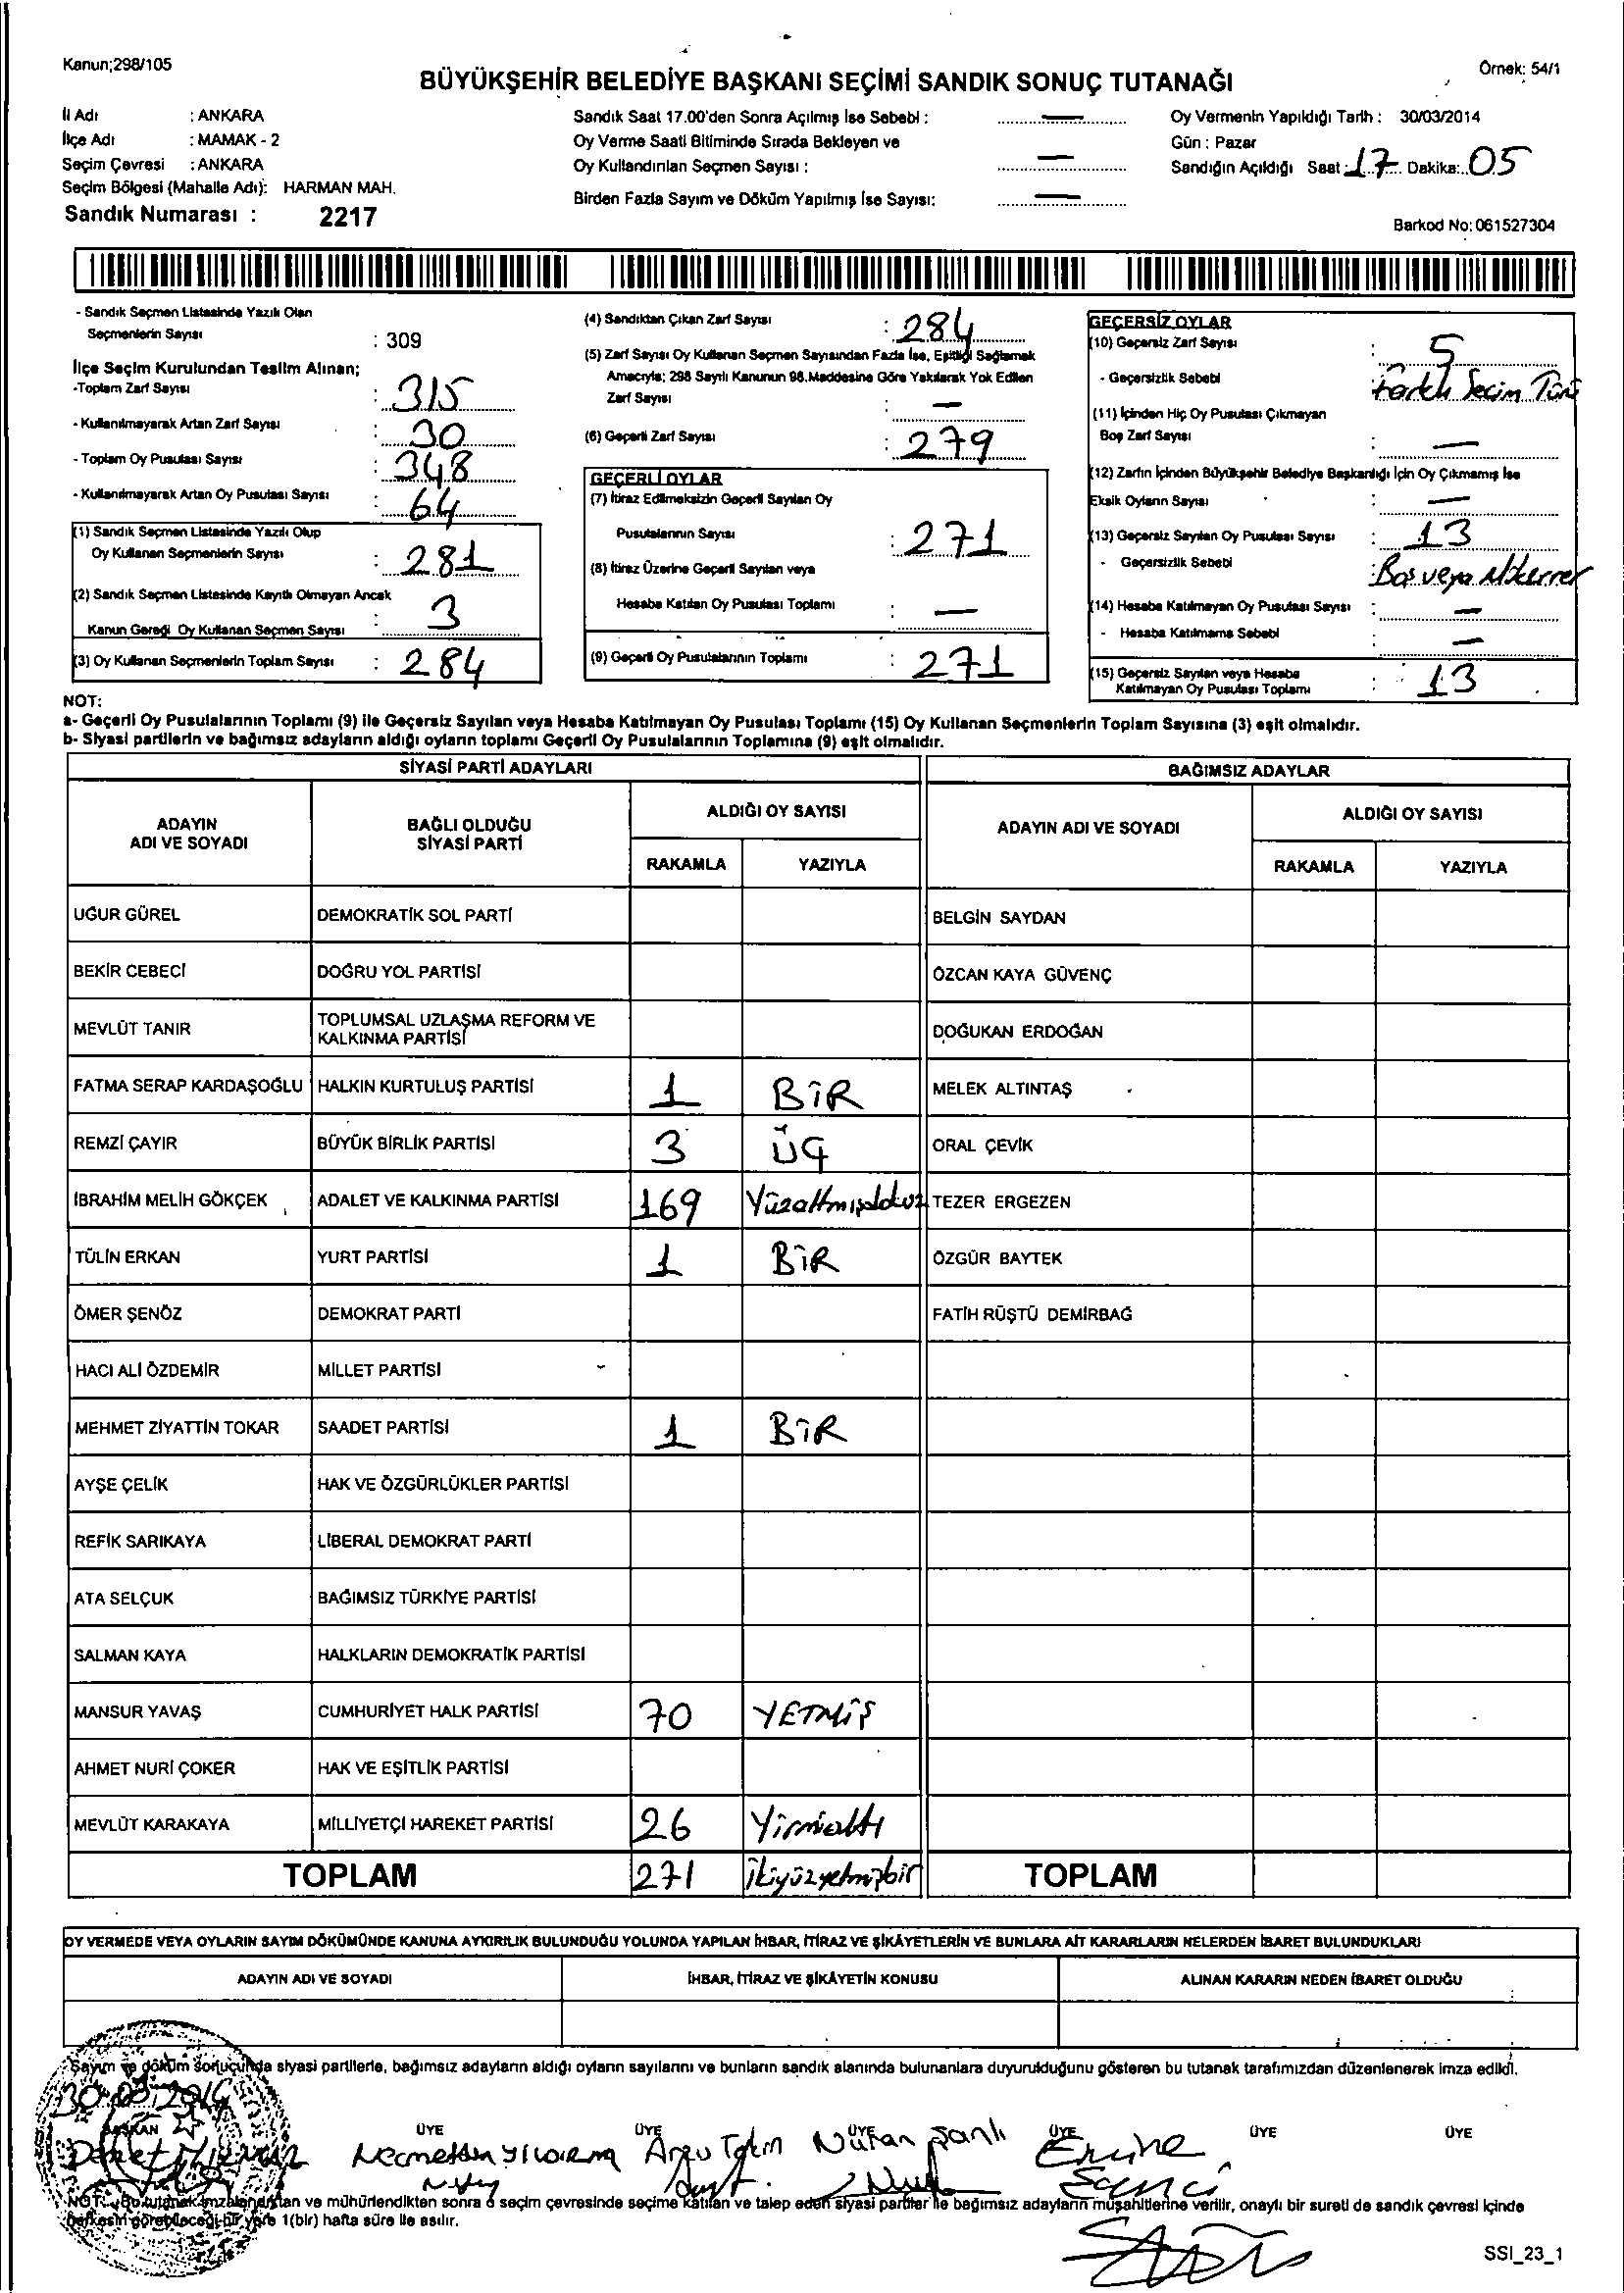 Kanun;298/105
Örnek: 54/1
BÜYÜKŞEHİR BELEDİYE BAŞKANI SEÇİMİ SANDIK SONUÇ TUTANAĞI
İl Adı : ANKARA
İlçe Adı : MAMAK - 2
Seçim Çevresi : ANKARA
Seçim Bölgesi (Mahalle Adı): HARMAN MAH.
Sandık Numarası : 2217
Sandık Saat 17.00'den Sonra Açılmış İse Sebebi : —
Oy Verme Saati Bitiminde Sırada Bekleyen ve
Oy Kullandırılan Seçmen Sayısı : —
Birden Fazla Sayım ve Döküm Yapılmış İse Sayısı: —
Oy Vermenin Yapıldığı Tarih : 30/03/2014
Gün : Pazar
Sandığın Açıldığı Saat : 17 Dakika: 05
Barkod No: 061527304
- Sandık Seçmen Listesinde Yazılı Olan
Seçmenlerin Sayısı : 309
İlçe Seçim Kurulundan Teslim Alınan;
-Toplam Zarf Sayısı : 315
- Kullanılmayarak Artan Zarf Sayısı : 30
- Toplam Oy Pusulası Sayısı : 348
- Kullanılmayarak Artan Oy Pusulası Sayısı : 64
(1) Sandık Seçmen Listesinde Yazılı Olup
Oy Kullanan Seçmenlerin Sayısı : 281
(2) Sandık Seçmen Listesinde Kayıtlı Olmayan Ancak
Kanun Gereği Oy Kullanan Seçmen Sayısı : 3
(3) Oy Kullanan Seçmenlerin Toplam Sayısı : 284
(4) Sandıktan Çıkan Zarf Sayısı : 284
(5) Zarf Sayısı Oy Kullanan Seçmen Sayısından Fazla İse, Eşitliği Sağlamak
Amacıyla; 298 Sayılı Kanunun 98.Maddesine Göre Yakılarak Yok Edilen
Zarf Sayısı : —
(6) Geçerli Zarf Sayısı : 279
GEÇERLİ OYLAR
(7) İtiraz Edilmeksizin Geçerli Sayılan Oy
Pusulalarının Sayısı : 271
(8) İtiraz Üzerine Geçerli Sayılan veya
Hesaba Katılan Oy Pusulası Toplamı : —
(9) Geçerli Oy Pusulalarının Toplamı : 271
GEÇERSİZ OYLAR
(10) Geçersiz Zarf Sayısı : 5
- Geçersizlik Sebebi : Farklı Seçim Türü
(11) İçinden Hiç Oy Pusulası Çıkmayan
Boş Zarf Sayısı : —
(12) Zarfın İçinden Büyükşehir Belediye Başkanlığı İçin Oy Çıkmamış İse
Eksik Oyların Sayısı : —
(13) Geçersiz Sayılan Oy Pusulası Sayısı : 13
- Geçersizlik Sebebi : Boş veya Mükerrer
(14) Hesaba Katılmayan Oy Pusulası Sayısı : —
- Hesaba Katılmama Sebebi : —
(15) Geçersiz Sayılan veya Hesaba
Katılmayan Oy Pusulası Toplamı : 13
NOT:
a- Geçerli Oy Pusulalarının Toplamı (9) ile Geçersiz Sayılan veya Hesaba Katılmayan Oy Pusulası Toplamı (15) Oy Kullanan Seçmenlerin Toplam Sayısına (3) eşit olmalıdır.
b- Siyasi partilerin ve bağımsız adayların aldığı oyların toplamı Geçerli Oy Pusulalarının Toplamına (9) eşit olmalıdır.
SİYASİ PARTİ ADAYLARI
BAĞIMSIZ ADAYLAR
ADAYIN ADI VE SOYADI
BAĞLI OLDUĞU SİYASİ PARTİ
ALDIĞI OY SAYISI
RAKAMLA YAZIYLA
ADAYIN ADI VE SOYADI
ALDIĞI OY SAYISI
RAKAMLA YAZIYLA
UĞUR GÜREL DEMOKRATİK SOL PARTİ BELGİN SAYDAN
BEKİR CEBECİ DOĞRU YOL PARTİSİ ÖZCAN KAYA GÜVENÇ
MEVLÜT TANIR TOPLUMSAL UZLAŞMA REFORM VE KALKINMA PARTİSİ DOĞUKAN ERDOĞAN
FATMA SERAP KARDAŞOĞLU HALKIN KURTULUŞ PARTİSİ 1 BİR MELEK ALTINTAŞ
REMZİ ÇAYIR BÜYÜK BİRLİK PARTİSİ 3 ÜÇ ORAL ÇEVİK
İBRAHİM MELİH GÖKÇEK ADALET VE KALKINMA PARTİSİ 169 Yüzaltmışdokuz TEZER ERGEZEN
TÜLİN ERKAN YURT PARTİSİ 1 BİR ÖZGÜR BAYTEK
ÖMER ŞENÖZ DEMOKRAT PARTİ FATİH RÜŞTÜ DEMİRBAĞ
HACI ALİ ÖZDEMİR MİLLET PARTİSİ
MEHMET ZİYATTİN TOKAR SAADET PARTİSİ 1 BİR
AYŞE ÇELİK HAK VE ÖZGÜRLÜKLER PARTİSİ
REFİK SARIKAYA LİBERAL DEMOKRAT PARTİ
ATA SELÇUK BAĞIMSIZ TÜRKİYE PARTİSİ
SALMAN KAYA HALKLARIN DEMOKRATİK PARTİSİ
MANSUR YAVAŞ CUMHURİYET HALK PARTİSİ 70 YETMİŞ
AHMET NURİ ÇOKER HAK VE EŞİTLİK PARTİSİ
MEVLÜT KARAKAYA MİLLİYETÇİ HAREKET PARTİSİ 26 Yirmialtı
TOPLAM 271 İkiyüzyetmişbir TOPLAM
OY VERMEDE VEYA OYLARIN SAYIM DÖKÜMÜNDE KANUNA AYKIRILIK BULUNDUĞU YOLUNDA YAPILAN İHBAR, İTİRAZ VE ŞİKÂYETLERİN VE BUNLARA AİT KARARLARIN NELERDEN İBARET BULUNDUKLARI
ADAYIN ADI VE SOYADI İHBAR, İTİRAZ VE ŞİKÂYETİN KONUSU ALINAN KARARIN NEDEN İBARET OLDUĞU
Sayım ve döküm sonucunda siyasi partilerle, bağımsız adayların aldığı oyların sayılarını ve bunların sandık alanında bulunanlara duyurulduğunu gösteren bu tutanak tarafımızdan düzenlenerek imza edildi.
30.03.2014
BAŞKAN ÜYE ÜYE ÜYE ÜYE ÜYE ÜYE
Necmettin YILDIRIM Arzu Nuran Şanlı Emine
NOT: Bu tutanak imzalandıktan ve mühürlendikten sonra o seçim çevresinde seçime katılan ve talep eden siyasi partiler ile bağımsız adayların müşahitlerine verilir, onaylı bir sureti de sandık çevresi içinde
herkesin görebileceği bir yere 1(bir) hafta süre ile asılır.
SSI_23_1